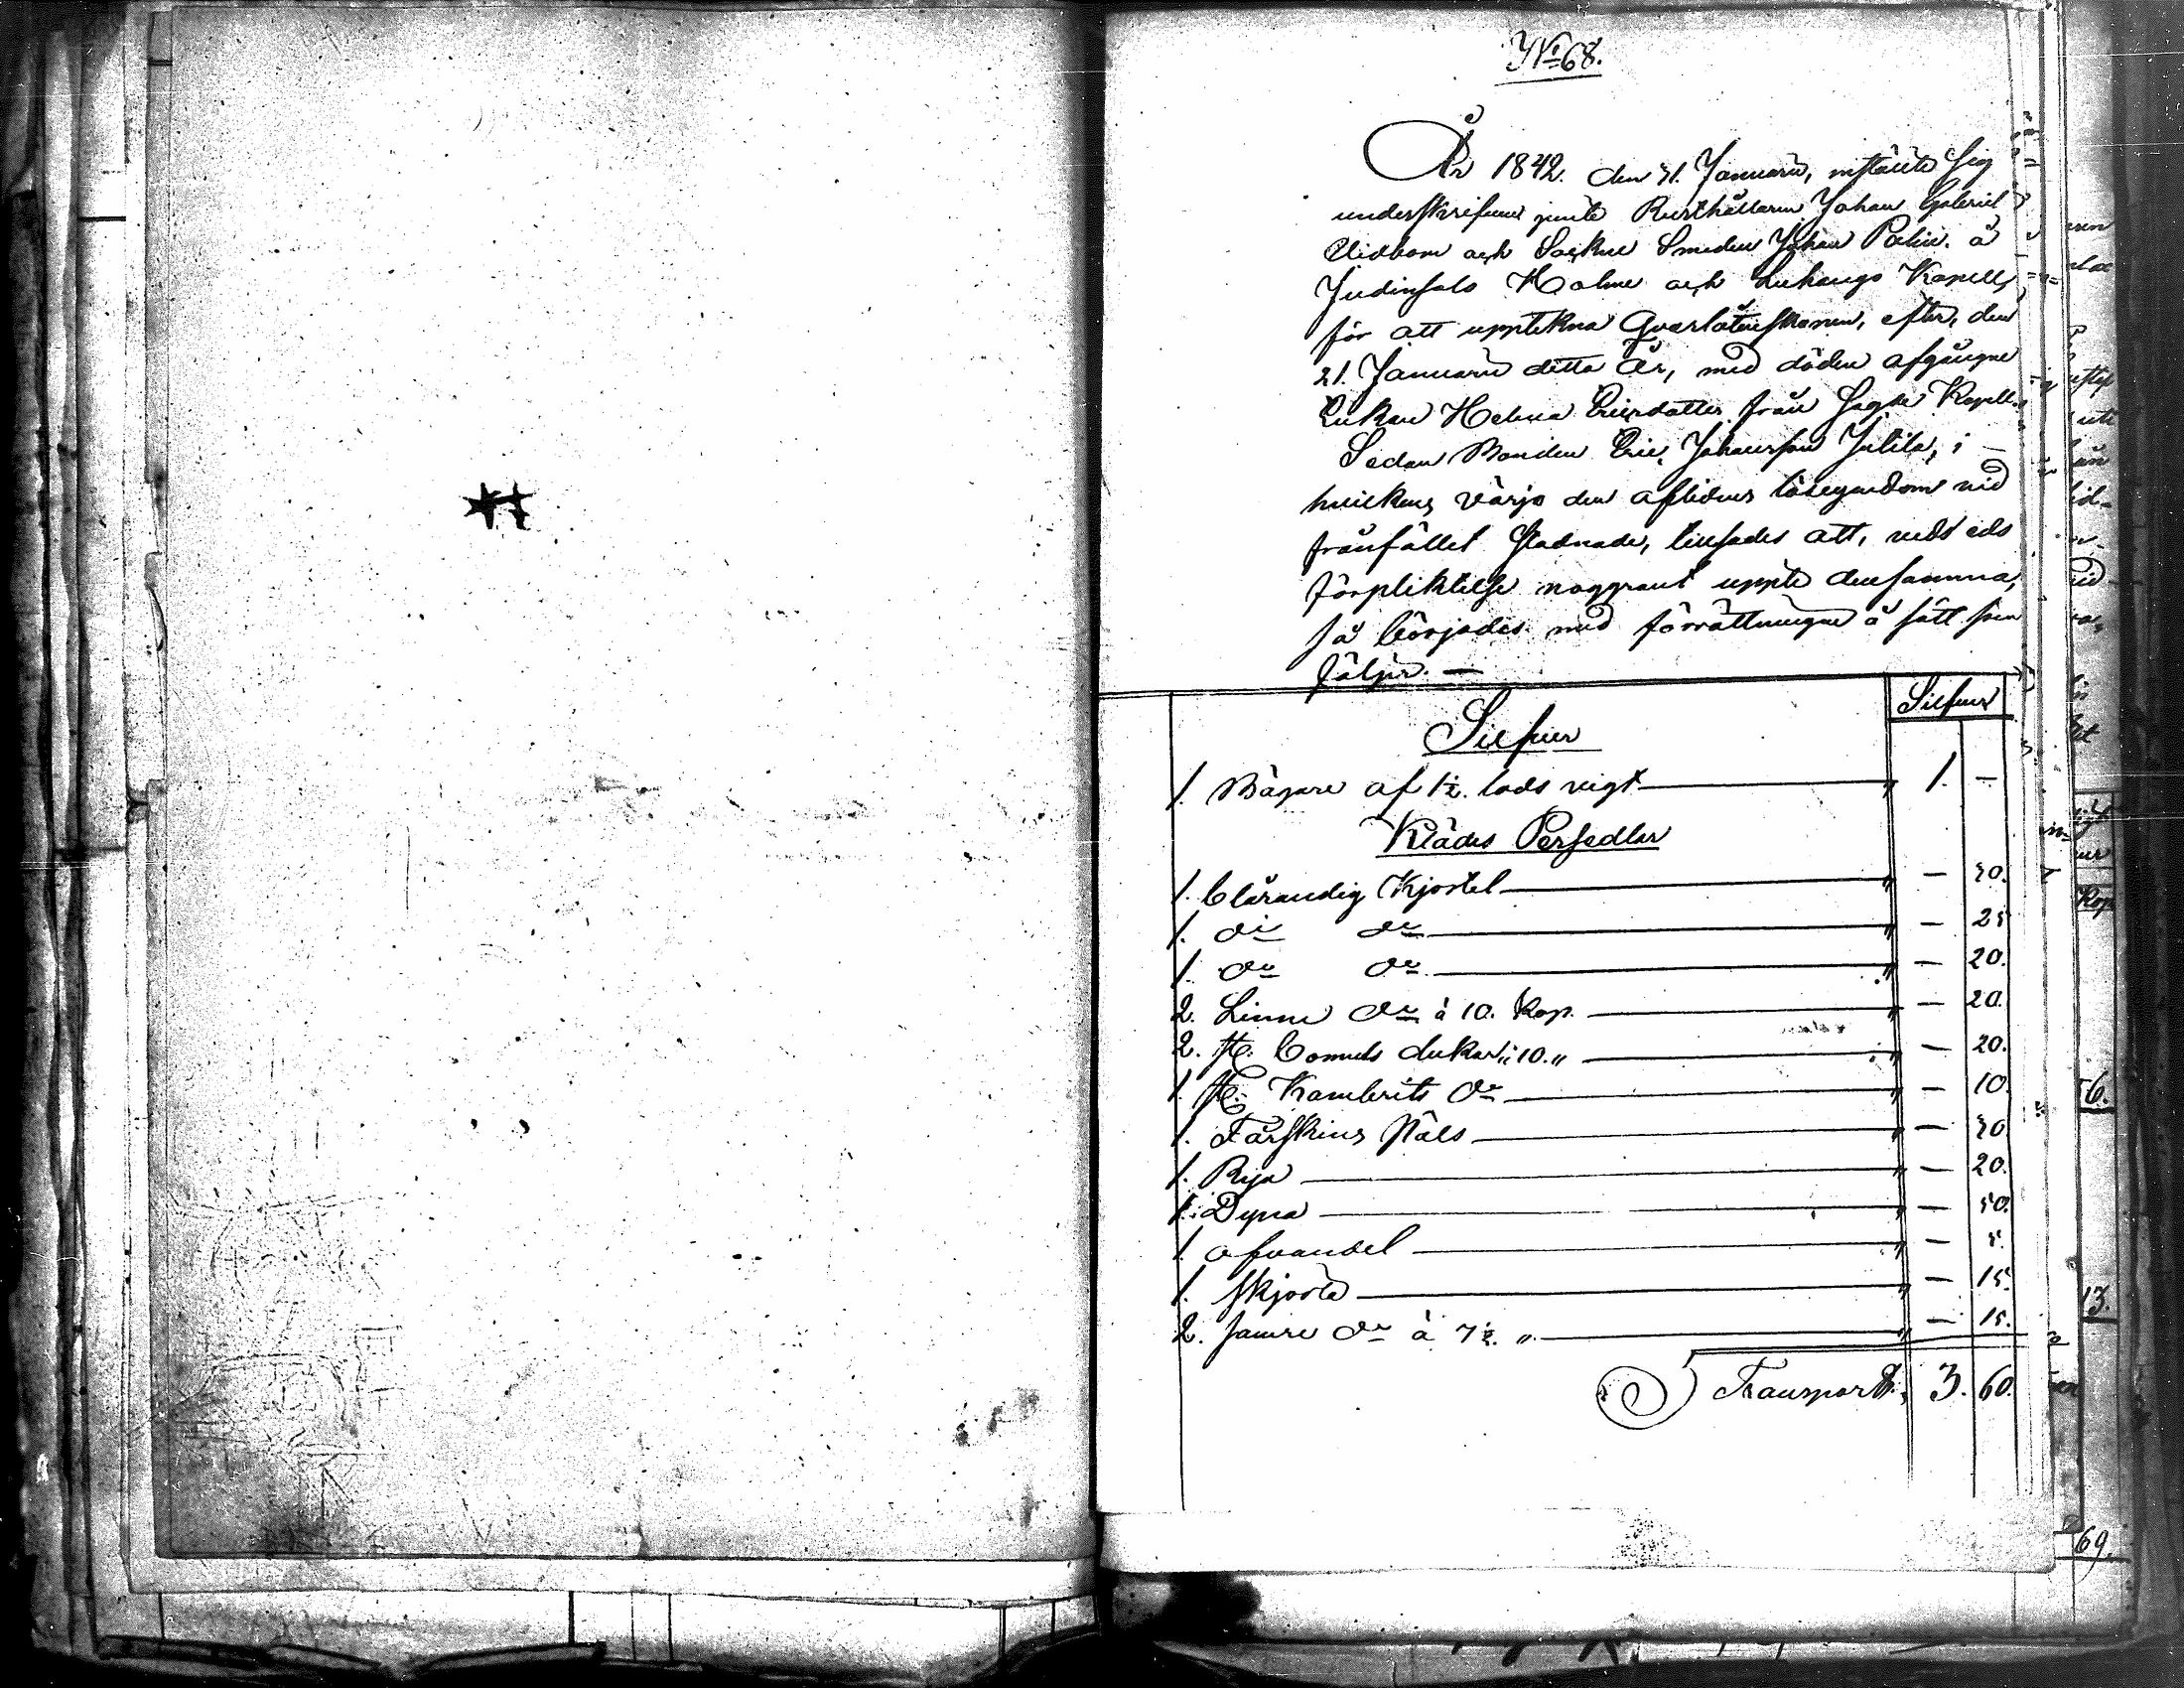 No 68.
År 1842. den 31. Januarii, instälte sig
underskrifven jemte Rusthållaren Johan Gabriel
Widbom och Socken Smeden Johan Palin. å
Judinsalo Holme och Luhango Kapell,
för att uppteckna Qvarlåtenskapen, efter, den
21. Januarii detta År, med döden afgångne
Enkan Helena Ericsdotter från Kapell.
Sedan Bonden Eric Johansson Jutila, i
hvilkens värjo den aflidnes lösegendom vid
frånfället stadnade, tillsades att, vids eds
förpliktelse noggrant uppte densamma,
så börjades med förrättningne å sätt som
följer. —
Silfver
Silfver
1. Bägare af 1½. lods vigt " 1. —
Klädes Persedlar
1. blårandig Kjortel " — 30.
1. do do " — 25
1. do do " — 20.
2. Linne do à 10. Kop. " — 20.
2. st. Bomuls dukar à 10. " " — 20.
1. st. Kambrits do " — 10.
1. Fårskins Päls " — 30
1. Rya " — 20.
1. Dyna " — 50.
1. Öfvandel " — 5.
1. skjorta " — 15.
2. samre do à 7½. " " — 15.
Transport 3. 60.
Kop
6.
13.
69.